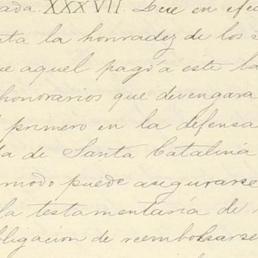 ada. XXXVII Que en efec
ata la honradez de los s
ue aquel pagó a este la
honorarios que devengara
l primero en la defensa
ta de Santa Catalina
modo puede asegurarse
la testamentaría de
bligacion de reembolsarse